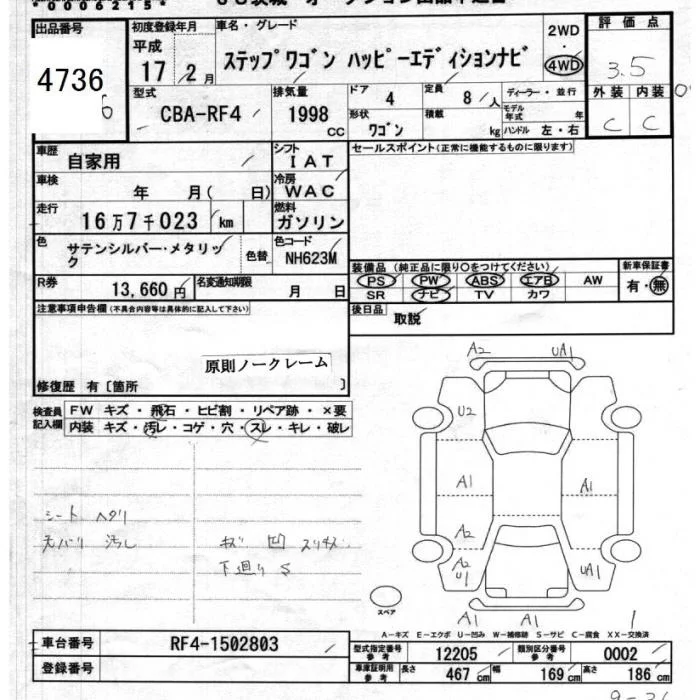 *0000215*
出品番号 初度登録年月 車名・グレード 2WD 評価点
4736 平成 17 2月 ステップワゴン ハッピーエディションナビ ・ 4WD 3.5
型式 CBA-RF4 排気量 1998 CC ドア 4 定員 8人 ディーラー・並行 外装 内装
形状 ワゴン 積載 kg モデル年式 年 ハンドル 左・右 C C
車歴 自家用 シフト IAT セールスポイント(正常に機能するものに限ります)
車検 年 月( 日) 冷房 WAC
走行 16万7千023 km 燃料 ガソリン
色 サテンシルバー・メタリック 色替 色コード NH623M
装備品(純正品に限り○をつけてください) 新車保証書
R券 13,660円 名変通知期限 月 日 PS PW ABS エアB AW 有・無
SR ナビ TV カワ
注意事項申告欄(不具合内容等は具体的に記入して下さい) 後日品 取説
原則ノークレーム
修復歴 有〔箇所 〕
A2 UA1
検査員記入欄 FW キズ・飛石・ヒビ割・リペア跡・×要
内装 キズ・汚レ・コゲ・穴・スレ・キレ・破レ
U2
A1 A1
シート ヘタリ
A2
天バリ 汚レ キズ 凹 スリキズ
下廻り S
A2 U1 UA1
スペア
A1 A1
A-キズ E-エクボ U-凹み W-補修跡 S-サビ C-腐食 XX-交換済
車台番号 RF4-1502803 型式指定番号 参考 12205 類別区分番号 参考 0002
登録番号 車庫証明用 参考 長さ 467cm 幅 169cm 高さ 186cm